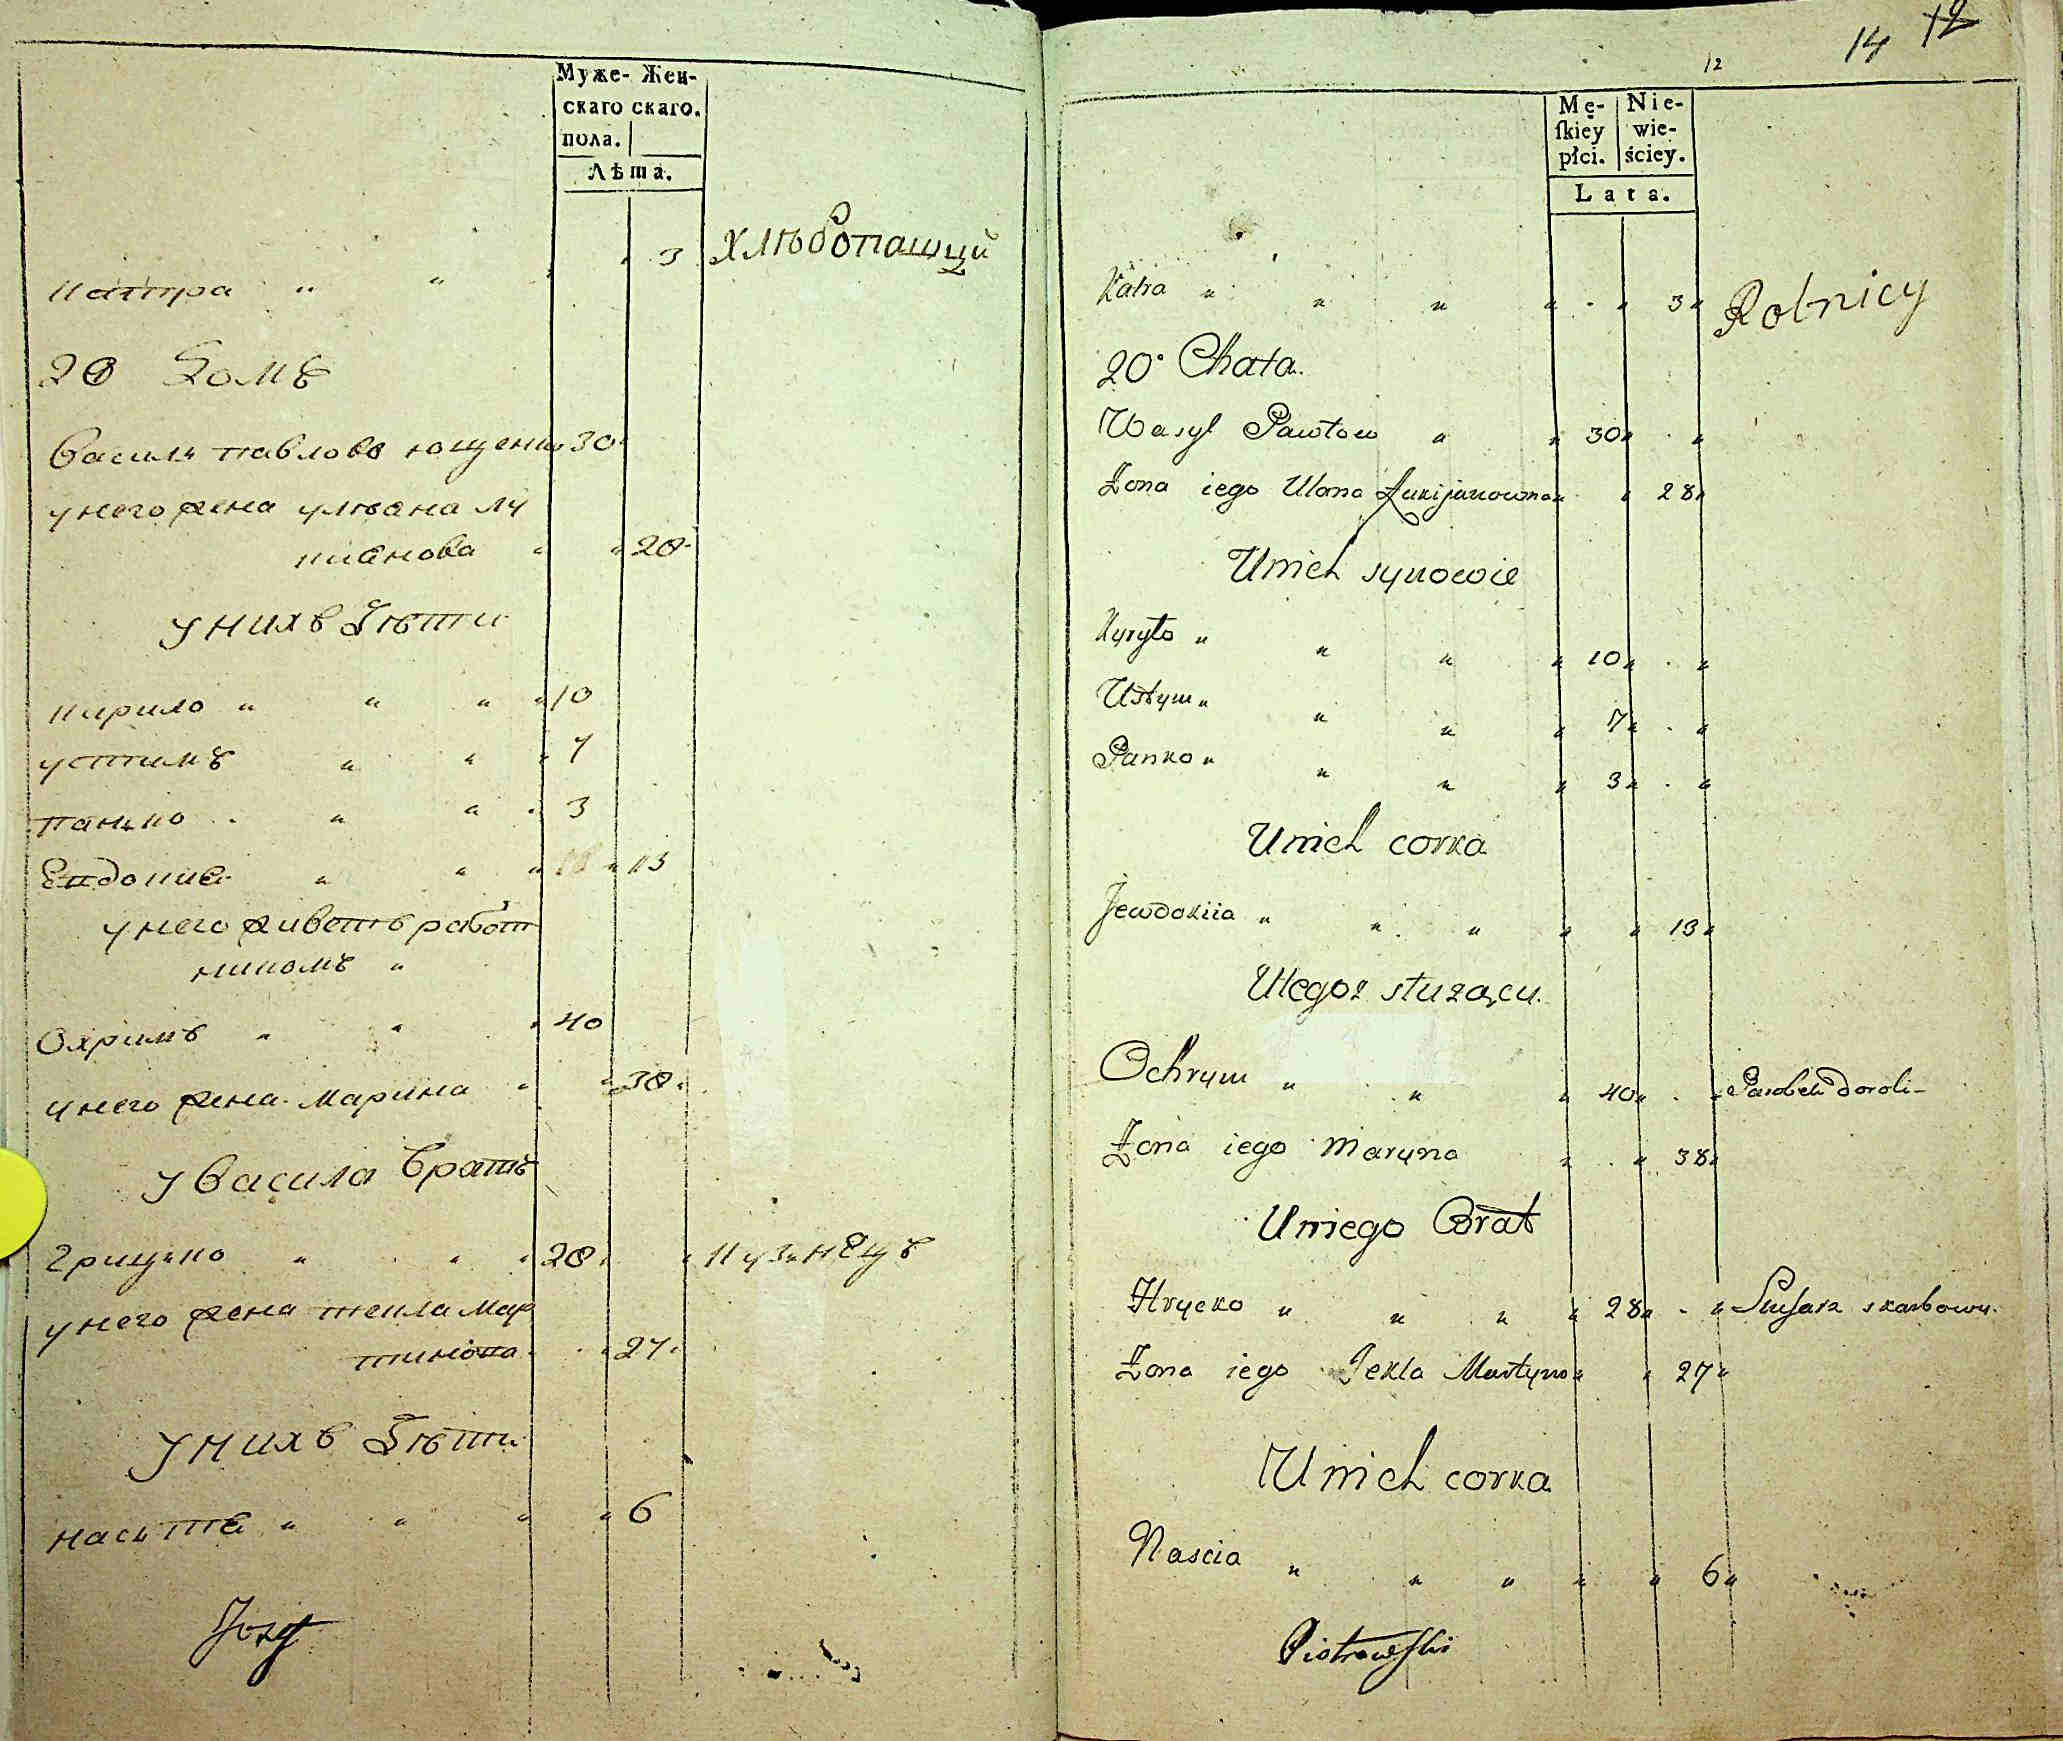 Муже- Жен-
скаго скаго.
пола.
Лѣта.
катра " " " " 3 хлѣбопащци
20 Домъ
Василь павловъ ющенко 30
у него жена уляана лу
киянова " " 28
у нихъ дѣти
кирило " " " " 10
устимъ " " " 7
панько " " " 3
Евдокия " " " " 13
у него живетъ работ
никомъ "
Охримъ " " " 40
у него жена марина " " 38
у Василя братъ
грицько " " " 28 " кузнецъ
у него жена текла мар
тинова " 27
у нихъ дѣти
настя " " " " 6
Jozef
14 12
12
Mę- Nie-
ſkiey wie-
płci. ściey.
Lata.
Katra " " " " " 3 " Rolnicy
20. Chata.
Wasyl Pawłow " " 30 " "
Żona iego Ulana Łukijanowna " " 28 "
U nich synowie
Kyryło " " " " 10 " "
Ustym " " " " 7 " "
Panko " " " " 3 " "
U nich corka
Jewdokiia " " " " " 13 "
U tegoż służący.
Ochrym " " " 40 " " Parobek doroli-
Żona iego Maryna " " 38 "
U niego Brat
Hrycko " " " " 28 " " Slusarz skarbowy.
Żona iego Tekla Martyno " " 27 "
U nich corka
Nascia " " " " " 6 "
Piotrowſki